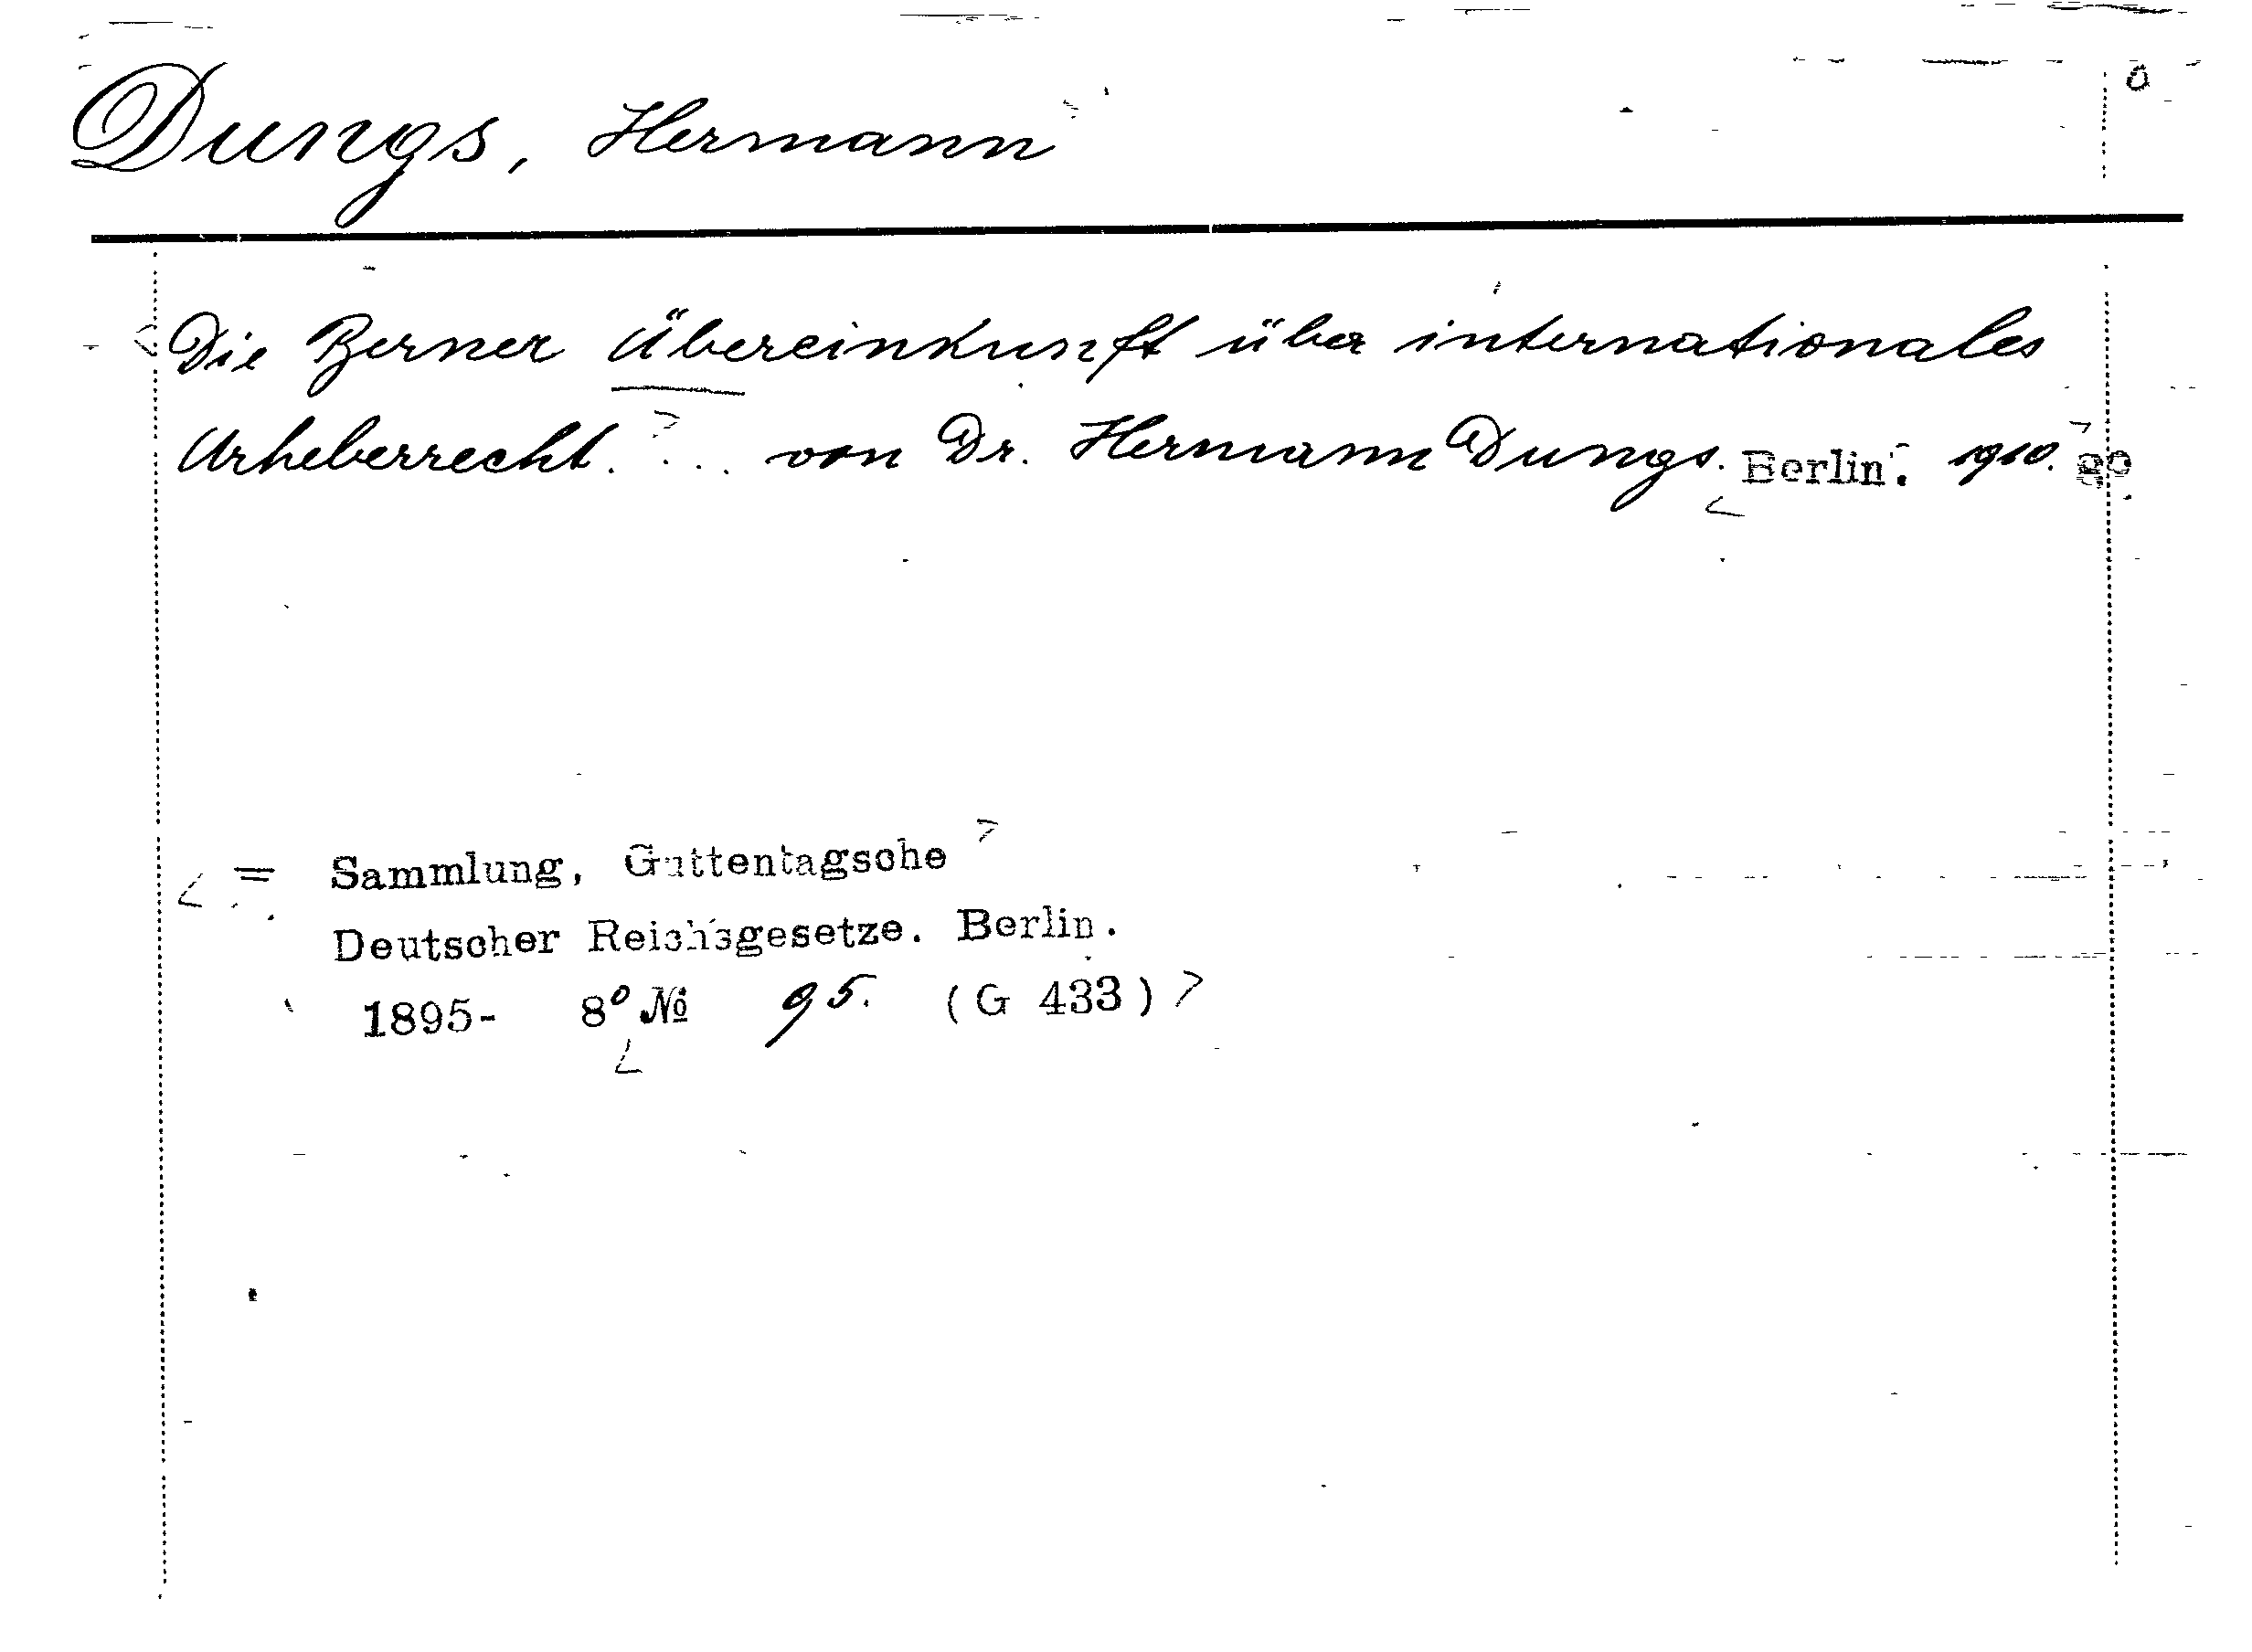 Dungs, Hermann
Die Berner Übereinkunft über internationales
Urheberrecht. ... von Dr. Hermann Dungs. Berlin. 1910. 8°
= Sammlung, Guttentagsche
Deutscher Reichsgesetze. Berlin.
1895- 8° № 95. (G 433)